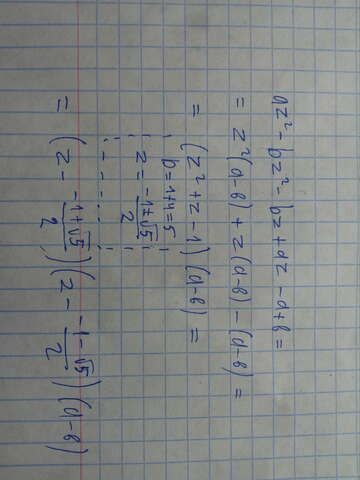 az² - bz² - bz + az - a + b =
= z²(a-b) + z(a-b) - (a-b) =
= (z² + z - 1)(a-b) =
D = 1+4 = 5
z = \frac{-1±√5}{2}
= (z - \frac{-1+√5}{2})(z - \frac{-1-√5}{2})(a-b)